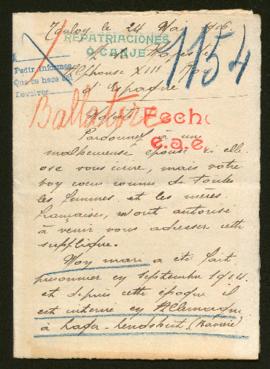 Toulon le 24 Mai 1916
REPATRIACIONES
O CANJE
1154
Sa Majesté
Alphonse XIII
d'Espagne
Pedir informes
Ballatin
Fecho
Pardonnez à une
malheureuse épouse si elle
ose vous écrire, mais votre
bon cœur connu de toutes
les femmes et les mères
françaises, m'ont autorisé
à venir vous adresser cette
supplique.
Mon mari a été fait
prisonnier en Septembre 1914
et depuis cette époque il
est interné en Allemagne
à Lager-